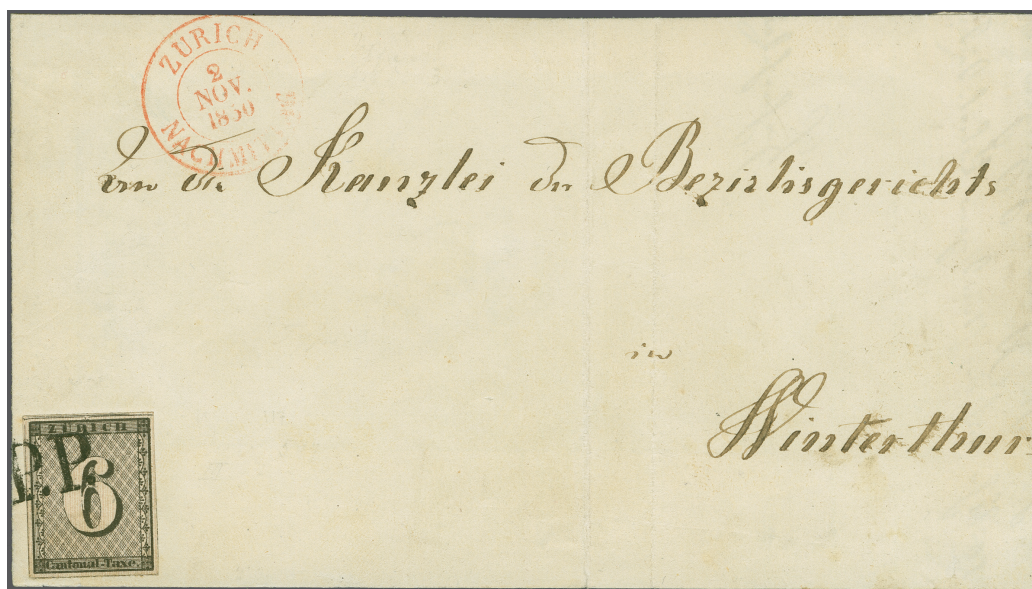 ZÜRICH
2
NOV.
1850
NACHMITTAG
An die Kanzlei des Bezirksgerichts
in
Winterthur.
ZÜRICH
P.P.
6
Cantonal-Taxe.